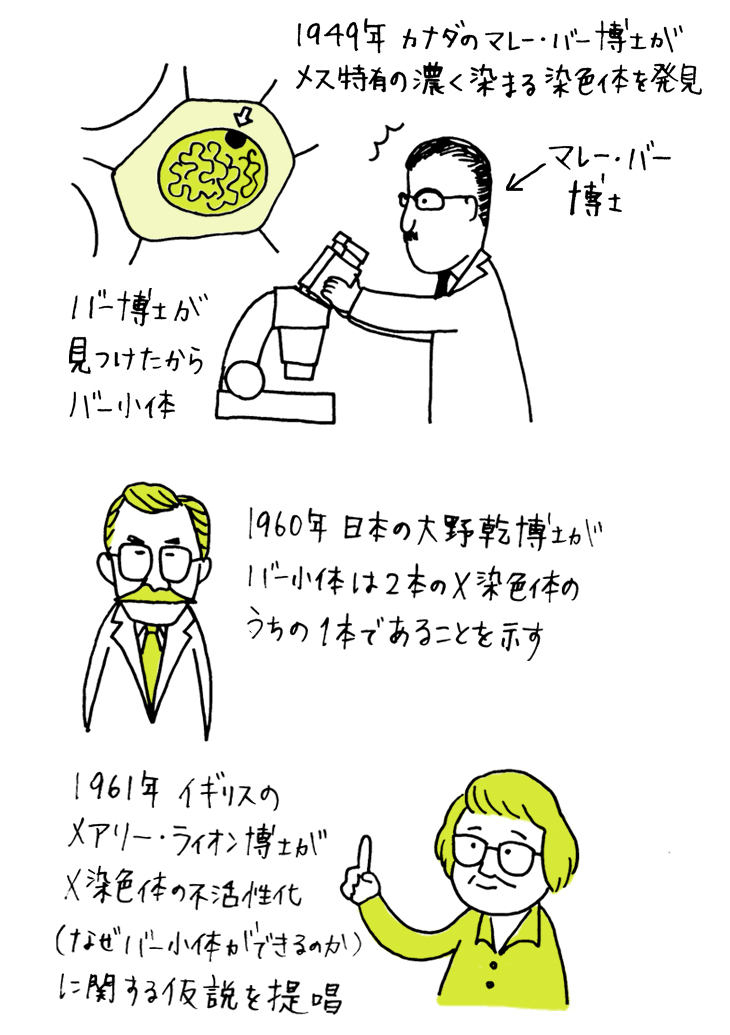 1949年 カナダのマレー・バー博士が
メス特有の濃く染まる染色体を発見
マレー・バー
博士
バー博士が
見つけたから
バー小体
1960年 日本の大野乾博士が
バー小体は2本のX染色体の
うちの1本であることを示す
1961年 イギリスの
メアリー・ライオン博士が
X染色体の不活性化
(なぜバー小体ができるのか)
に関する仮説を提唱